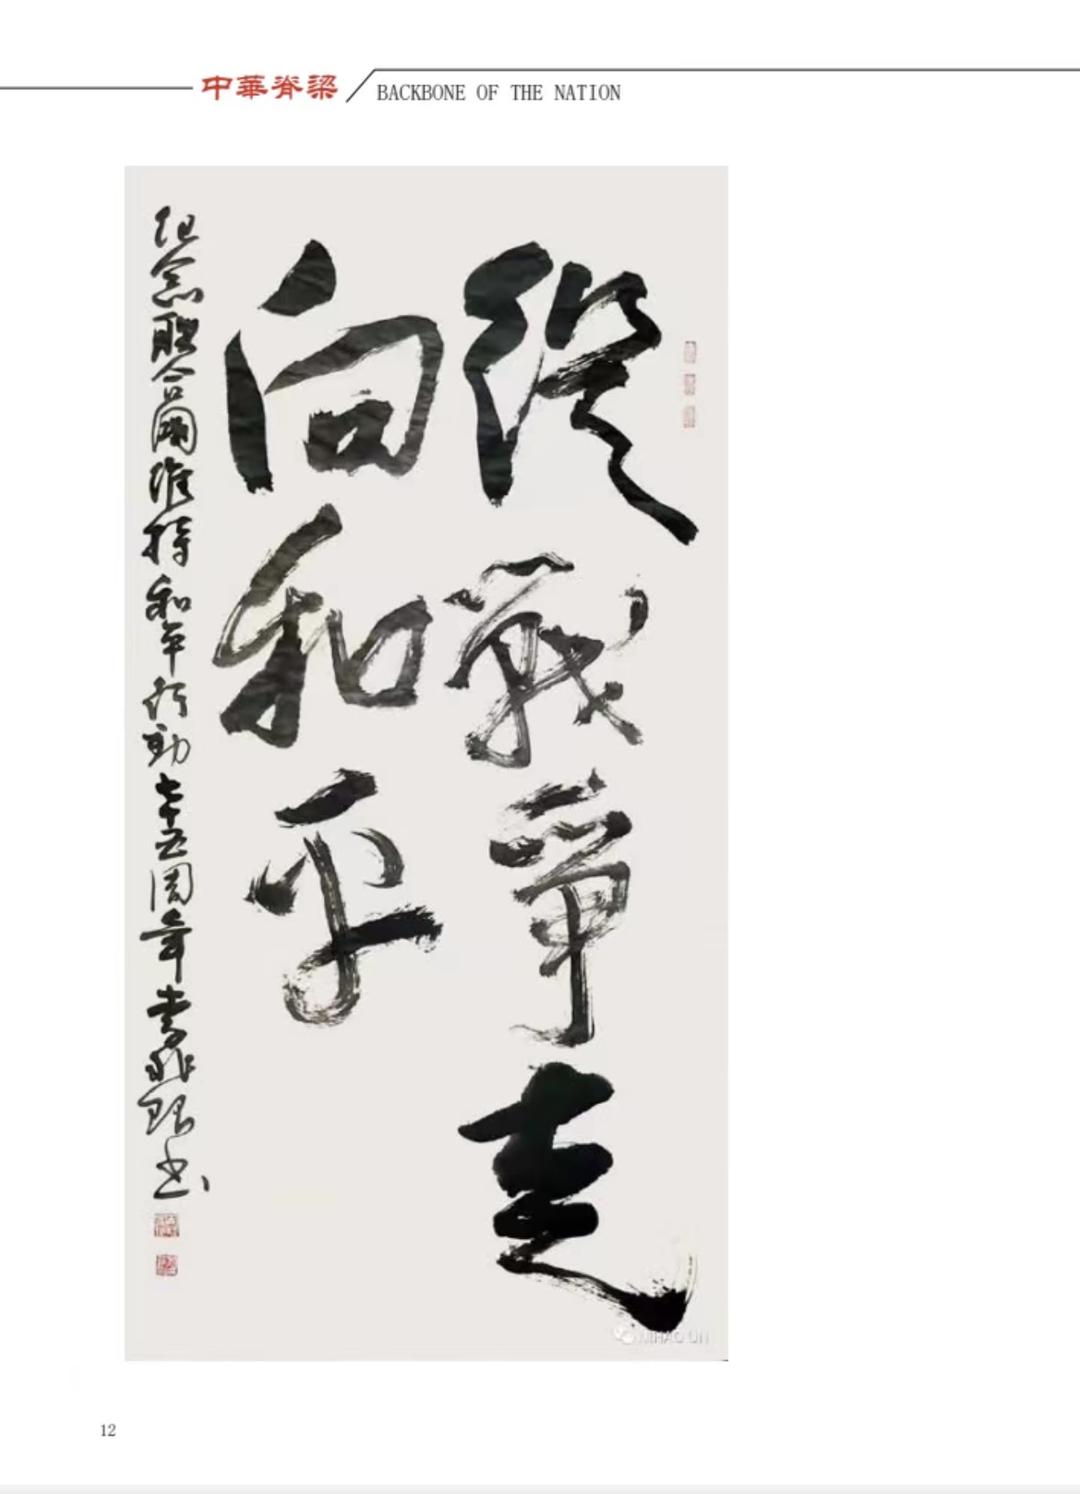 中華脊梁 BACKBONE OF THE NATION
從戰爭走
向和平
纪念联合國維持和平行動七十五周年李
書
NIHAO UN
12